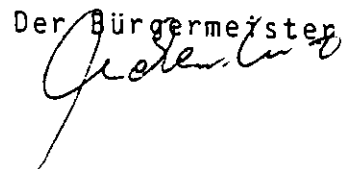 Der Bürgermeister